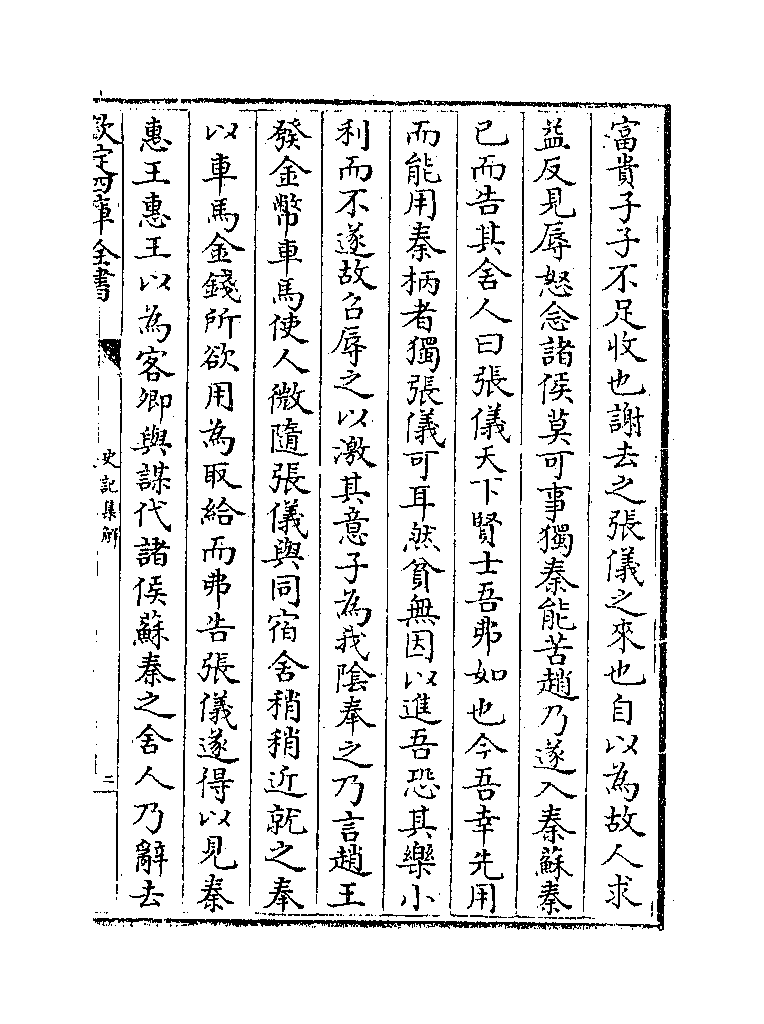 富貴子子不足收也謝去之張儀之來也自以為故人求
益反見辱怒念諸侯莫可事獨秦能苦趙乃遂入秦蘇秦
已而告其舍人曰張儀天下賢士吾弗如也今吾幸先用
而能用秦柄者獨張儀可耳然貧無因以進吾恐其樂小
利而不遂故召辱之以激其意子為我陰奉之乃言趙王
發金幣車馬使人微隨張儀與同宿舍稍稍近就之奉
以車馬金錢所欲用為取給而弗告張儀遂得以見秦
惠王惠王以為客卿與謀代諸侯蘇秦之舍人乃辭去
欽定四庫全書
史記集解
二